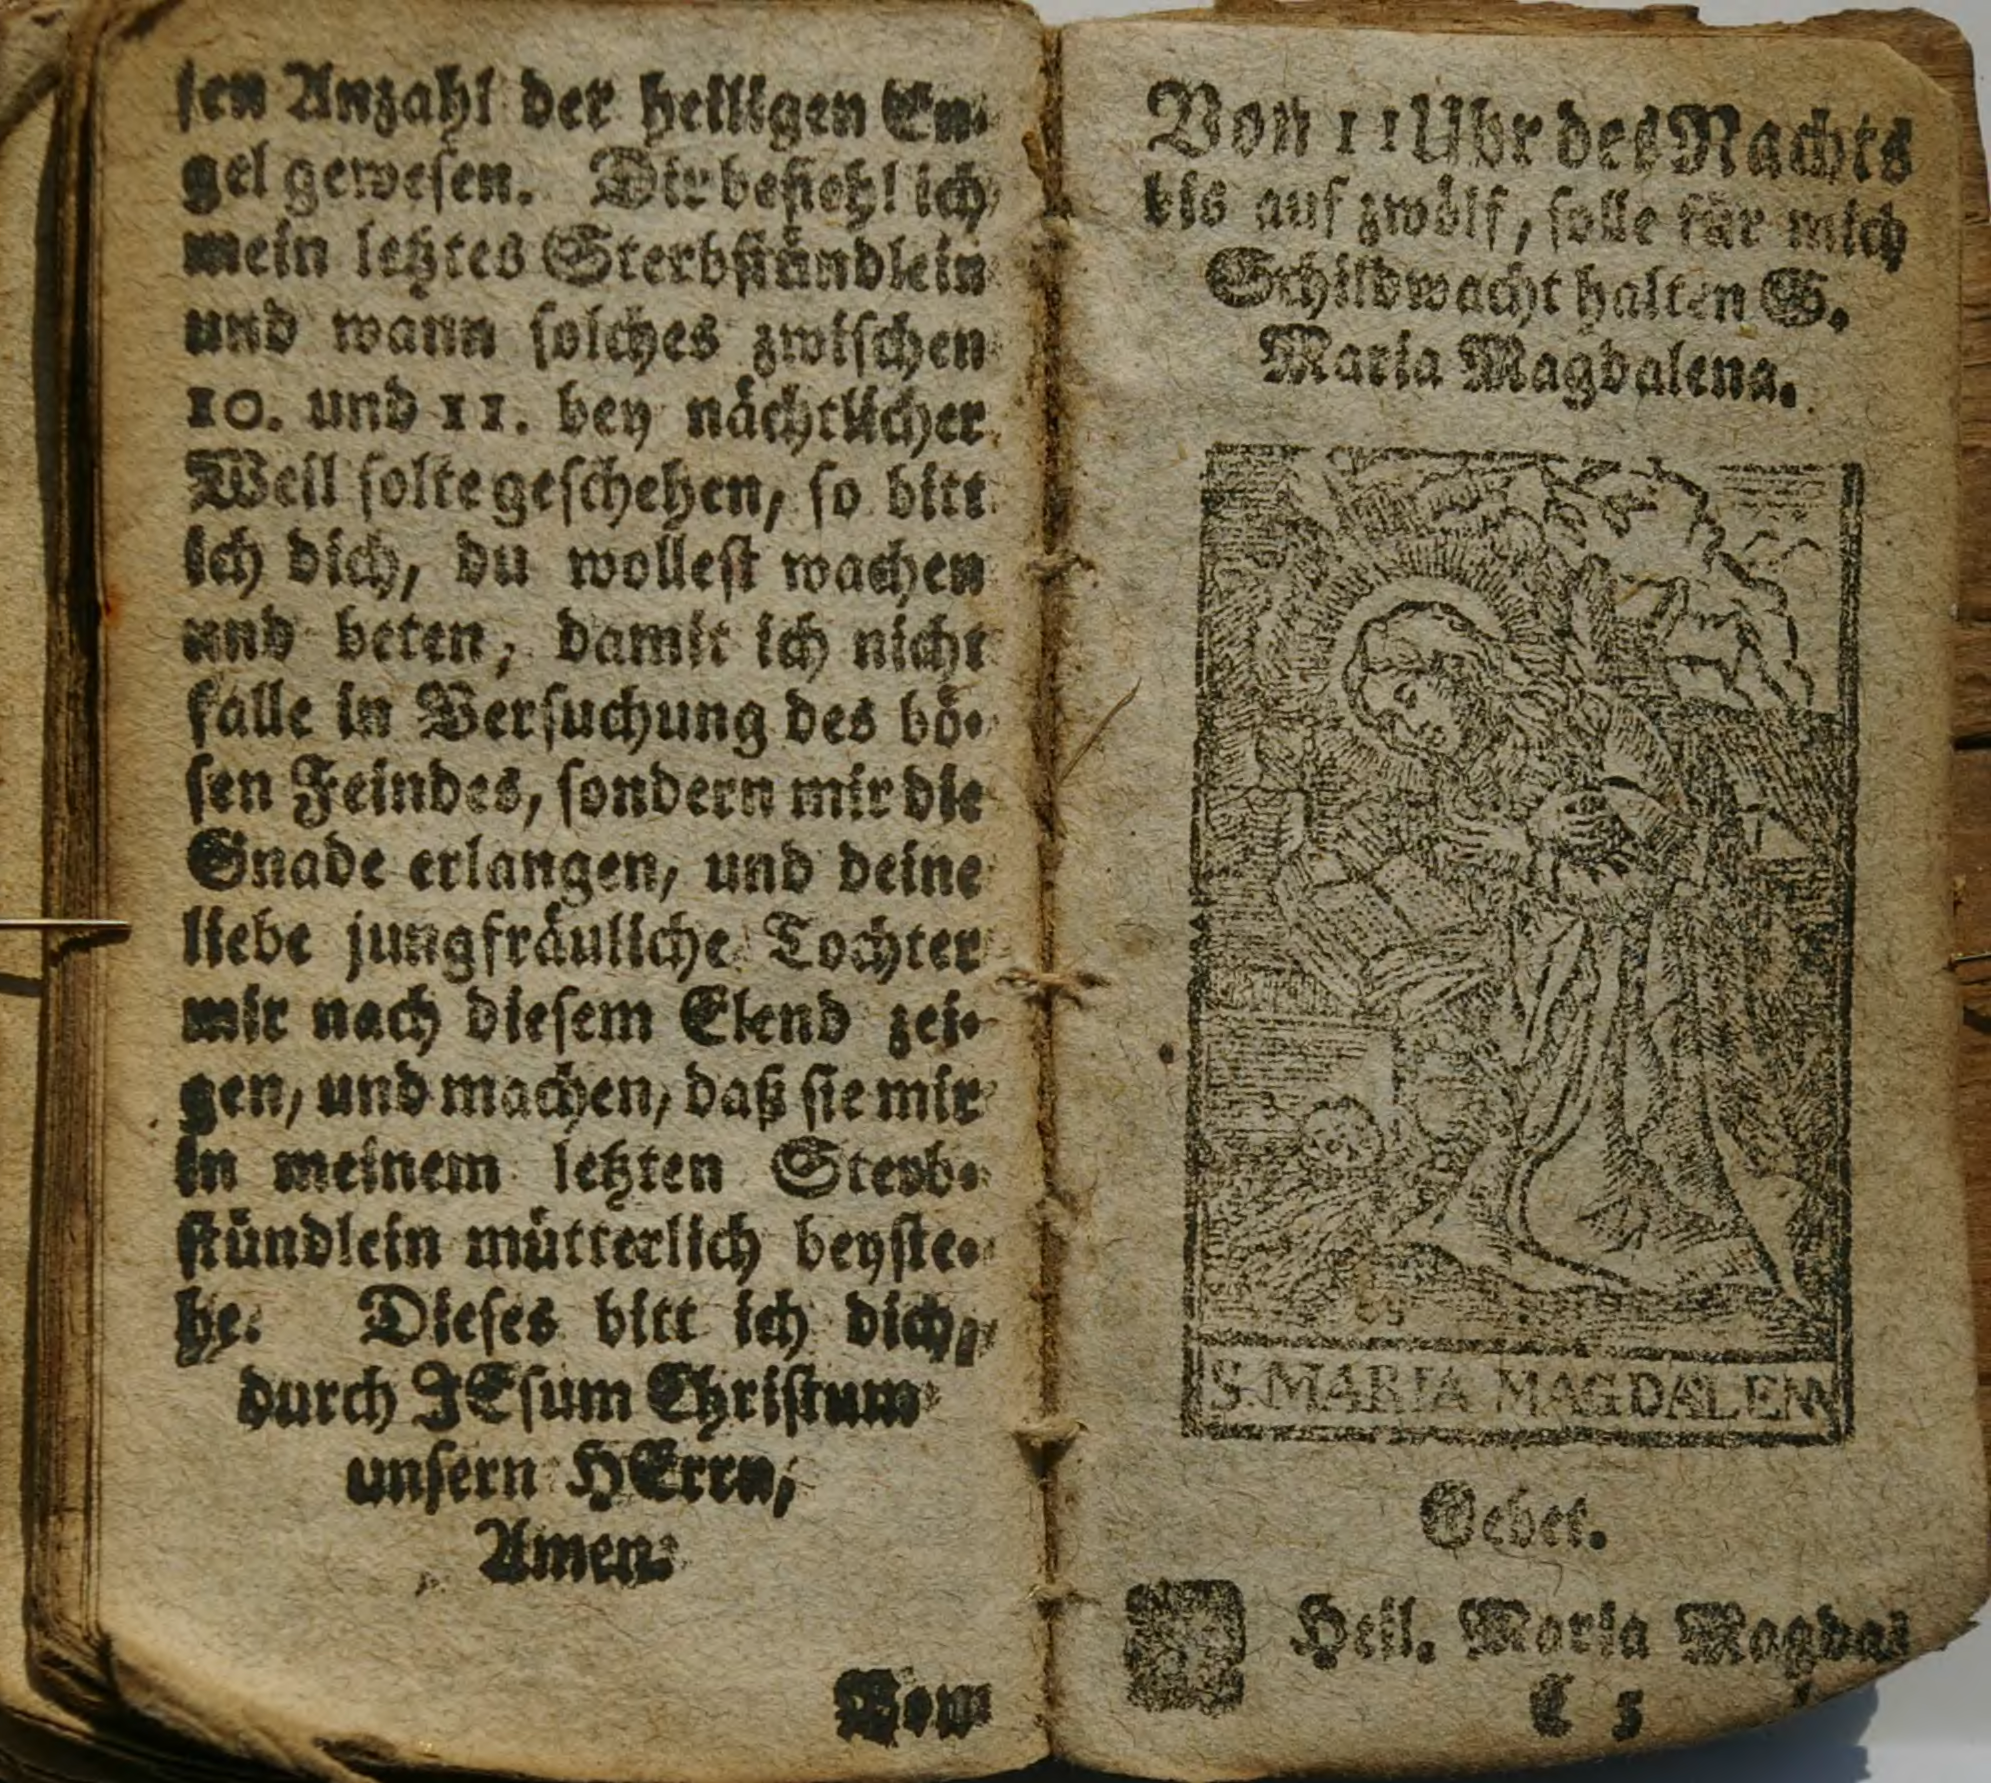 sen Anzahl der heiligen En-
gel gewesen. Dir befiehl ich
mein letztes Sterbstündlein
und wann solches zwischen
10. und 11. bey nächtlicher
Weil solte geschehen, so bitt
ich dich, du wollest wachen
und beten, damit ich nicht
falle in Versuchung des bö-
sen Feindes, sondern mir die
Gnade erlangen, und deine
liebe jungfräuliche Tochter
mir nach diesem Elend zei-
gen, und machen, daß sie mir
in meinem letzten Sterb-
stündlein mütterlich beyste-
he. Dieses bitt ich dich,
durch JEsum Christum
unsern HErrn,
Amen.
Von
Von 11 Uhr des Nachts
bis auf zwölf, solle für mich
Schildwacht halten S.
Maria Magdalena.
S. MARIA MAGDALEN
Gebet.
Heil. Maria Magda-
C 5